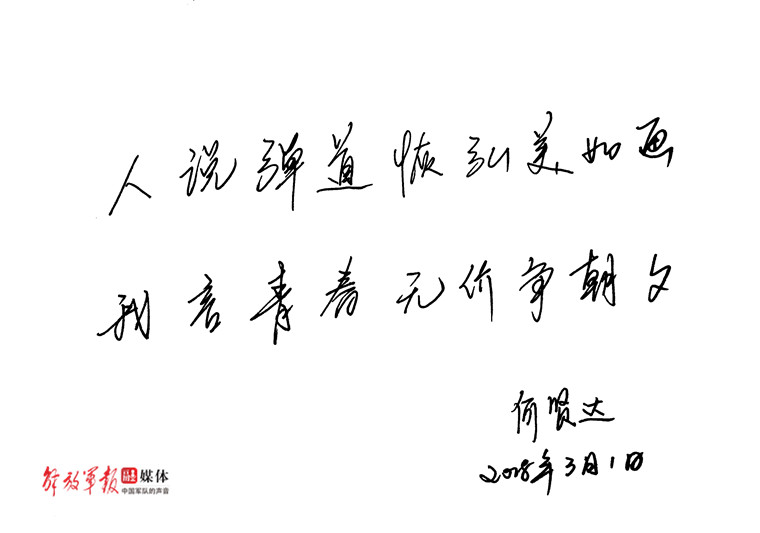 人说弹道恢弘美如画
我言青春无价争朝夕
何贤达
2018年3月1日
解放军报 融媒体
中国军队的声音